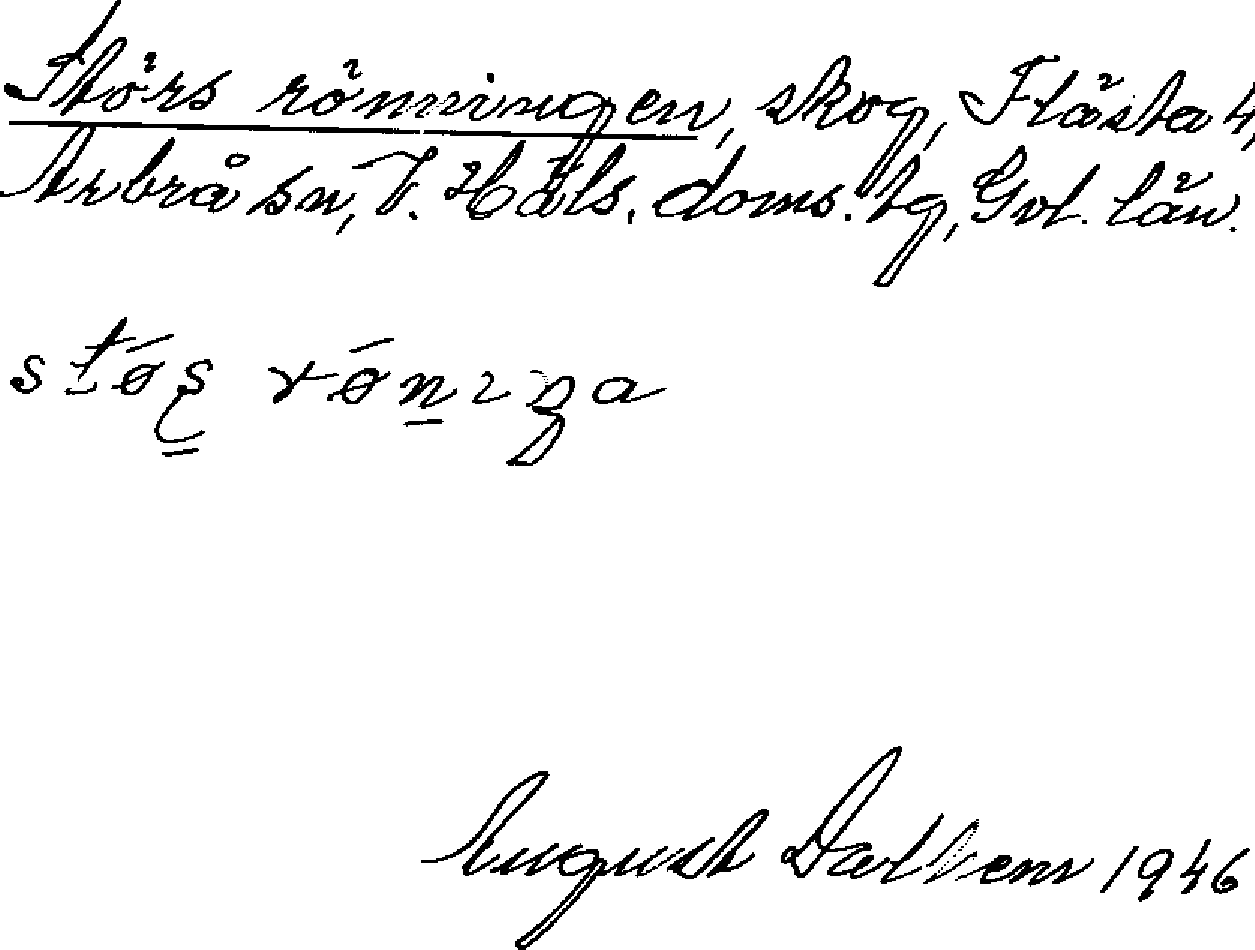 Störs rönningen, skog, Flästa 4,
Arbrå sn, V. Häls. doms. tg, Gvl. län.
stǿʂ rǿn̲ıŋa
August 1946